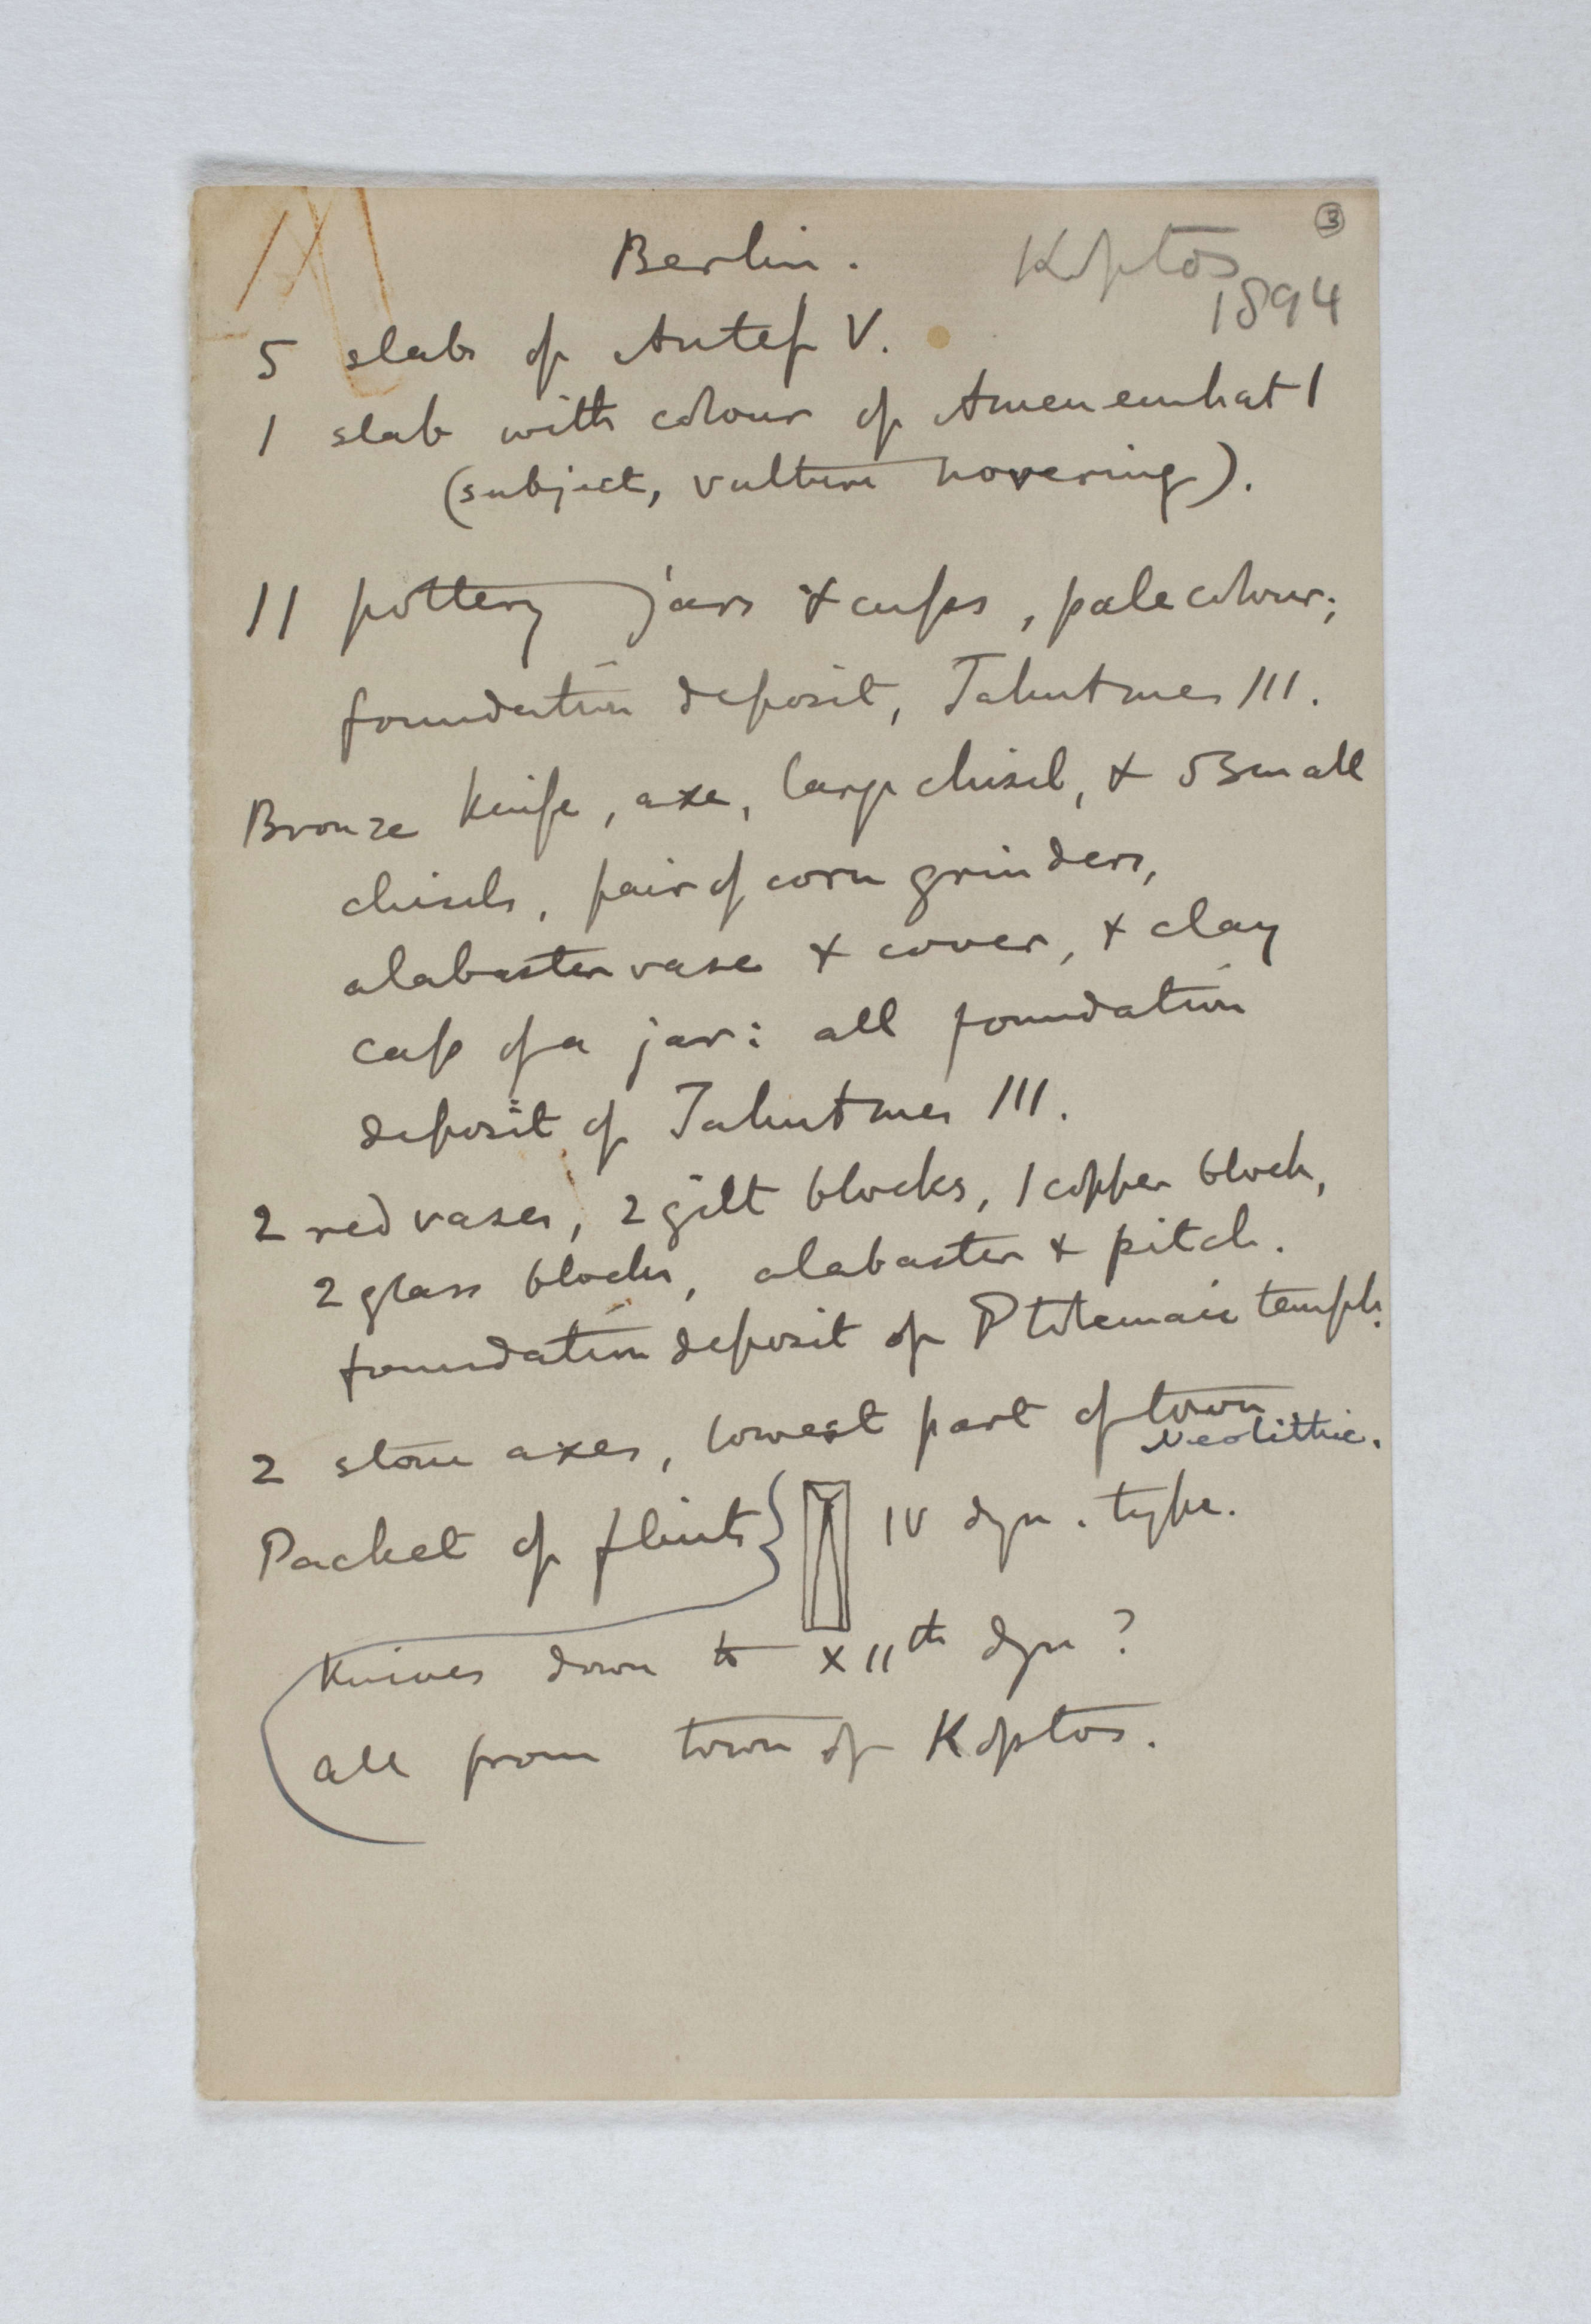 3
Berlin.
Koptos
1894
5 slabs of Antef V.
1 slab with colour of Amenemhat I
(subject, vulture hovering).
11 pottery jars & cups, pale colour;
foundation deposit, Tahutmes III.
Bronze knife, axe, large chisel, & 5 small
chisels, pair of corn grinders,
alabaster vase & cover, & clay
cap of a jar: all foundation
deposit of Tahutmes III.
2 red vases, 2 gilt blocks, 1 copper block,
2 glass blocks, alabaster & pitch.
foundation deposit of Ptolemaic temple.
2 stone axes, lowest part of town
Neolithic.
Packet of flints } IV dyn. type.
Knives down to XIIth dyn?
all from town of Koptos.